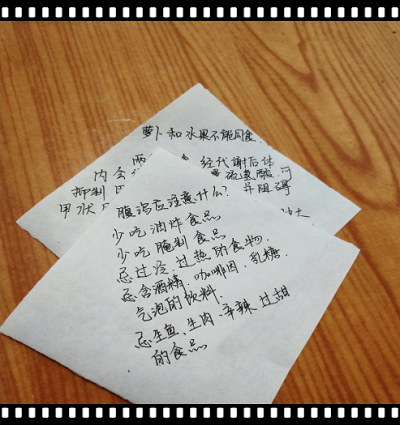 萝卜和水果不能同食.
两
经代謝后体
内会
硫氰酸,可
抑制
甲状
腹泻应注意什么?
少吃油炸食品
少吃腌制食品
忌过冷.过热的食物.
忌含酒精.咖啡因.乳糖.
气泡的饮料.
忌生鱼、生肉、辛辣 过甜
的食品